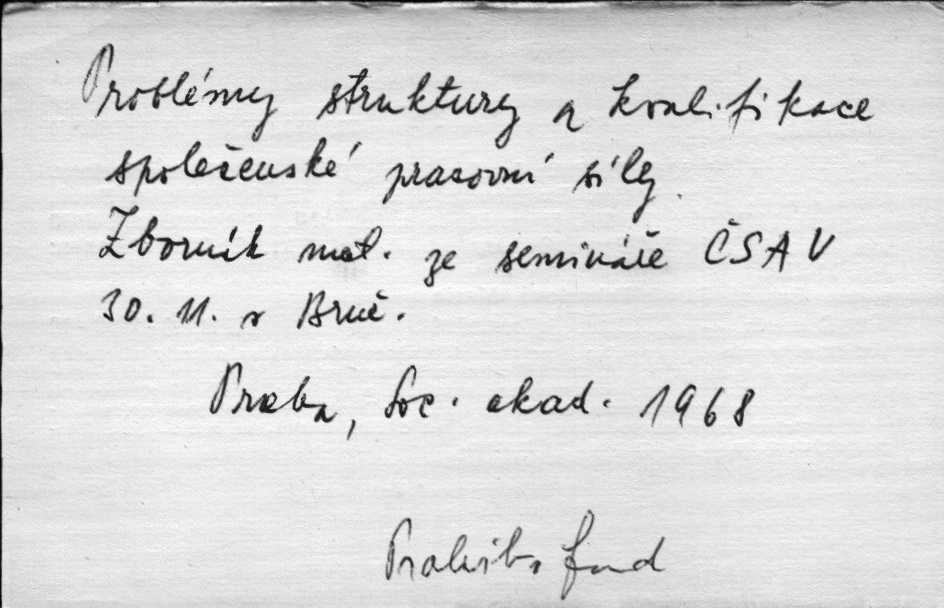 Problémy struktury a kvalifikace
společenské pracovní síly.
Zborník mat. ze semináře ČSAV
30. 11. v Brně.
Praha, Soc. akad. 1968
Prohib. fond